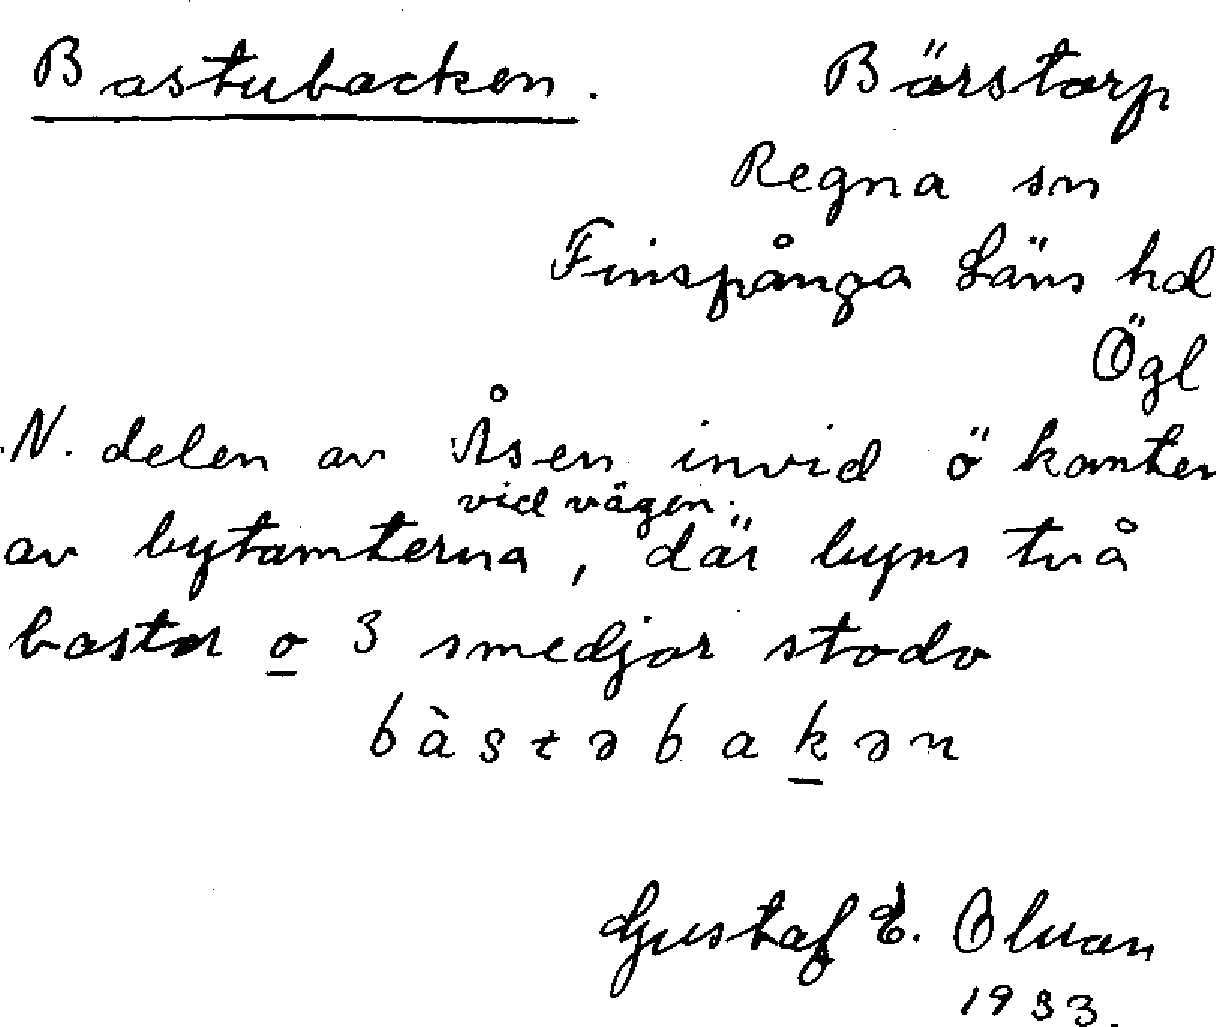 Bastubacken. Börstorp
Regna sn
Finspånga Läns hd
Ögl
N. delen av Åsen invid ö kanten
vid vägen.
av bytomterna, där byns två
bastur o 3 smedjor stodo
bàstəbakən
Gustaf E. Olsson
1933.